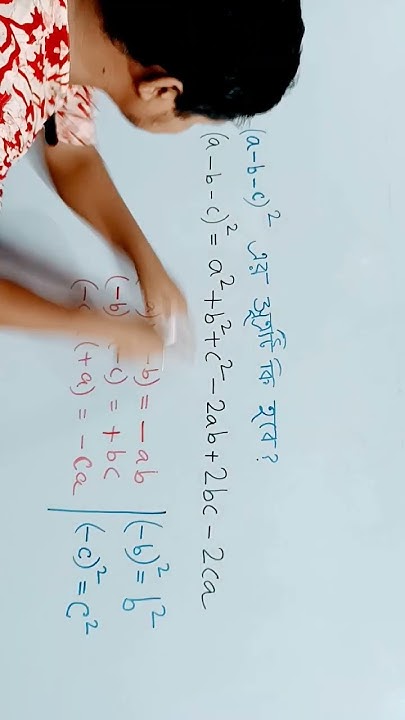 (a-b-c)² এর সূত্রটি কি হবে?
(a-b-c)² = a²+b²+c²-2ab+2bc-2ca
-b) = -ab
(-b) -c) = +bc
(+a) = -ca
(-b)² = b²
(-c)² = c²